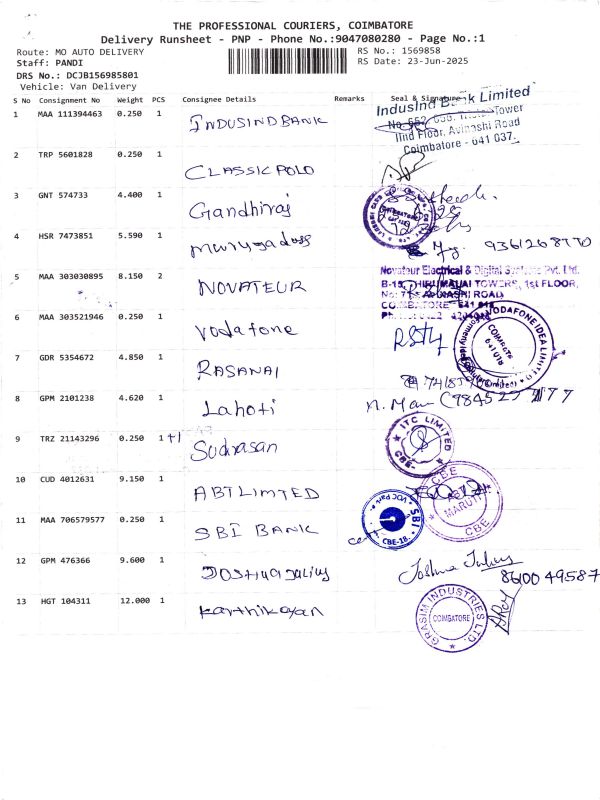 THE PROFESSIONAL COURIERS, COIMBATORE
Delivery Runsheet - PNP - Phone No.:9047080280 - Page No.:1
Route: MO AUTO DELIVERY RS No.: 1569858
Staff: PANDI RS Date: 23-Jun-2025
DRS No.: DCJB156985801
Vehicle: Van Delivery
S No Consignment No Weight PCS Consignee Details Remarks Seal & Signature
1 MAA 111394463 0.250 1 INDUSINDBANK
IndusInd Bank Limited
Tower
IInd Floor, Avinashi Road
Coimbatore - 641 037.
2 TRP 5601828 0.250 1 CLASSICPOLO
3 GNT 574733 4.400 1 Gandhiraj
4 HSR 7473851 5.590 1 murugadoss
5 MAA 303030895 8.150 2 NOVATEUR
Novateur Electrical & Digital Systems Pvt. Ltd.
B-15, THIRUMALAI TOWERS, 1st FLOOR,
AVINASHI ROAD
COIMBATORE
6 MAA 303521946 0.250 1 Vodafone
VODAFONE IDEA LIMITED
COIMBATORE
7 GDR 5354672 4.850 1 RASANAI
8 GPM 2101238 4.620 1 Lahoti
9 TRZ 21143296 0.250 1+1 Sudrasan
ITC LIMITED
CBE
10 CUD 4012631 9.150 1 ABT LIMTED
CBE
ABT
MARUTI
CBE
11 MAA 706579577 0.250 1 SBI BANK
SBI
CBE-18.
12 GPM 476366 9.600 1 JOSHUA JULIUS
Joshua Julius
8610049587
13 HGT 104311 12.000 1 Karthikayan
GRASIM INDUSTRIES LTD.
COIMBATORE